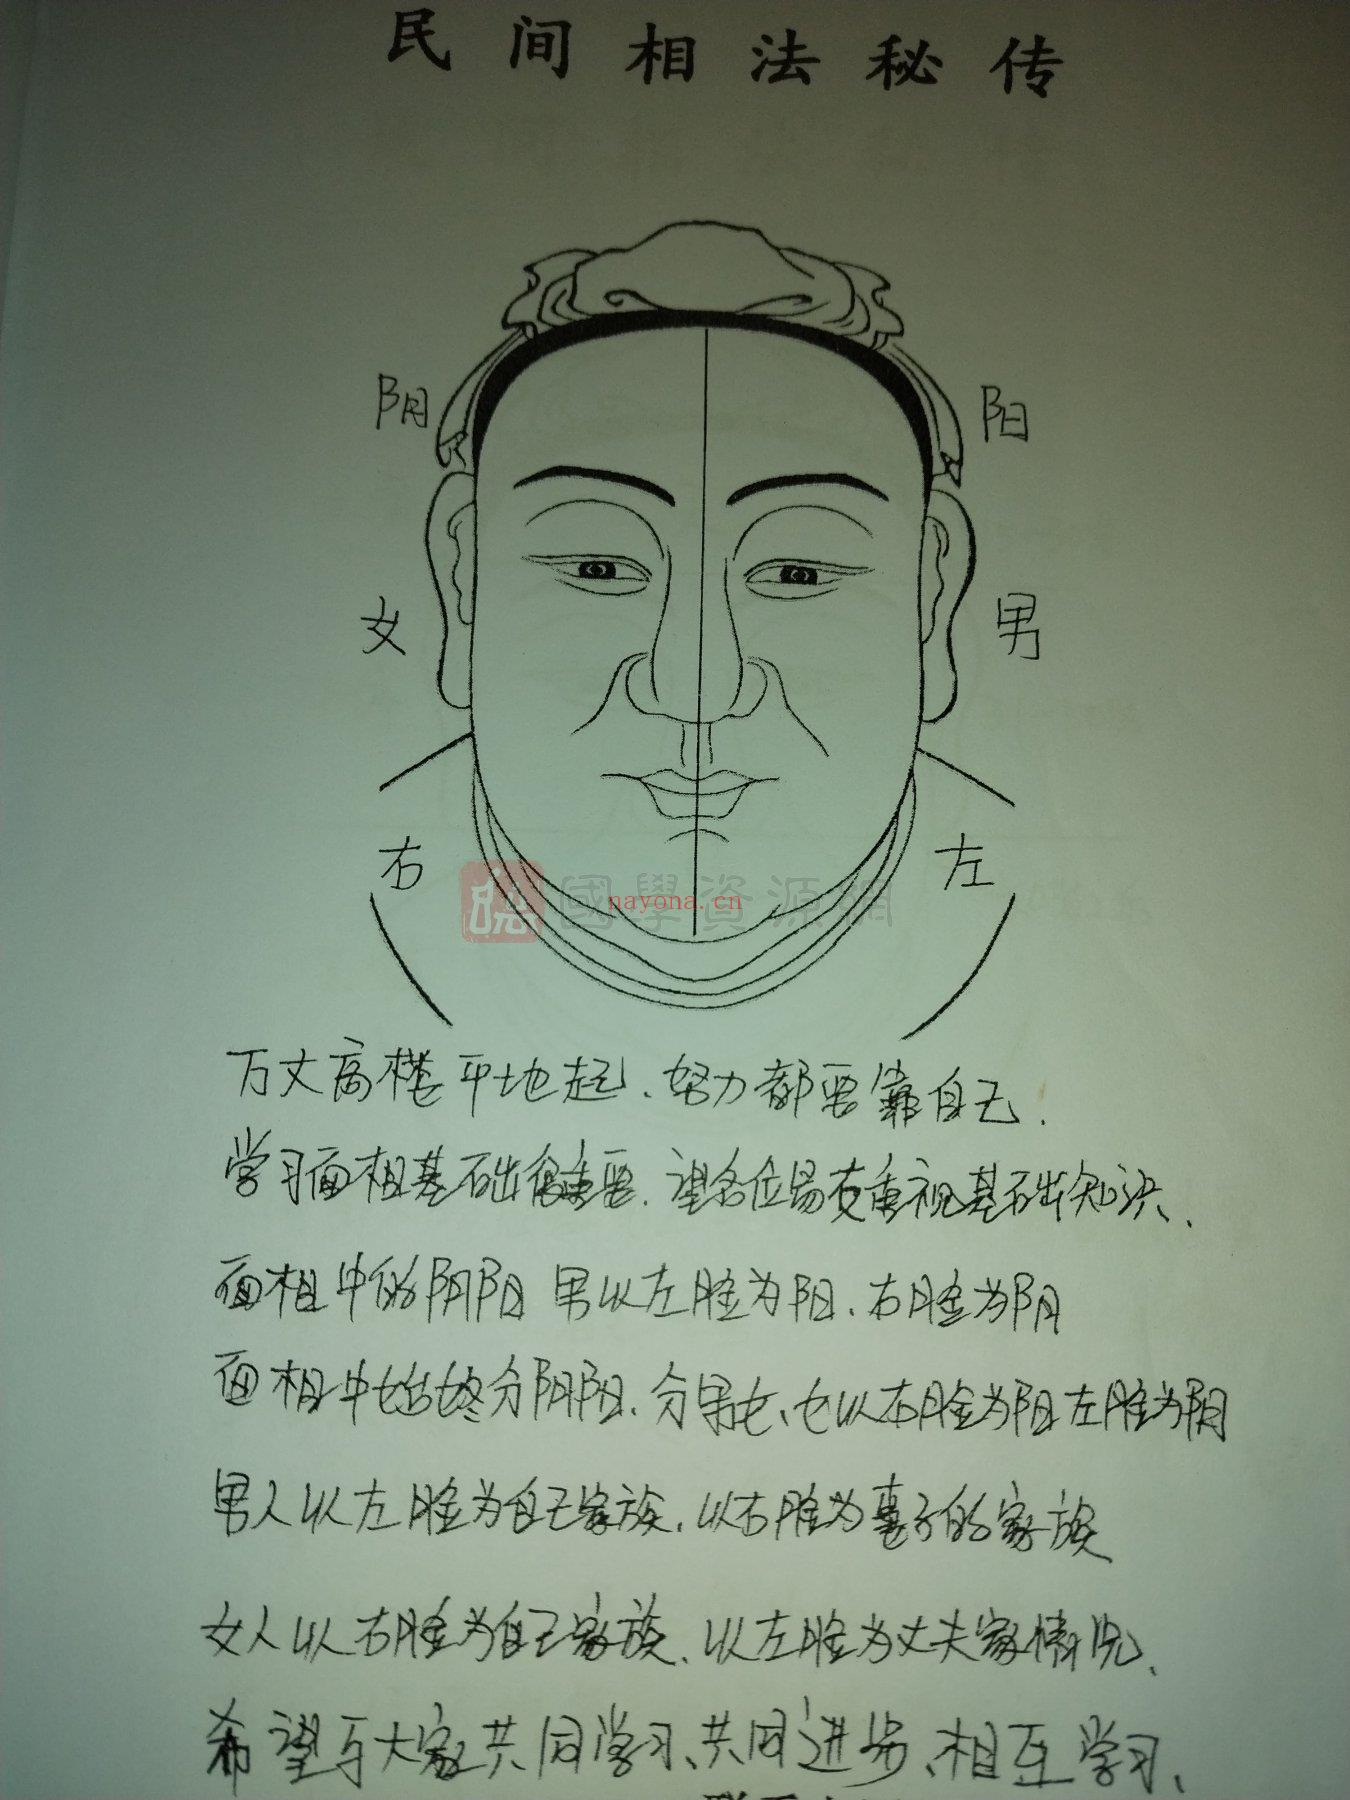 民间相法秘传
阴
阳
女
男
右
左
國學資源網
nayona.cn
万丈高楼平地起、努力都要靠自己.
学习面相基础很重要、望各位易友重视基础知识、
面相中的阴阳 男以左脸为阳、右脸为阴
面相中始终分阴阳、分男女、女以右脸为阳左脸为阴
男人以左脸为自己家族、以右脸为妻子的家族
女人以右脸为自己家族、以左脸为丈夫家情况、
希望与大家共同学习、共同进步、相互学习、